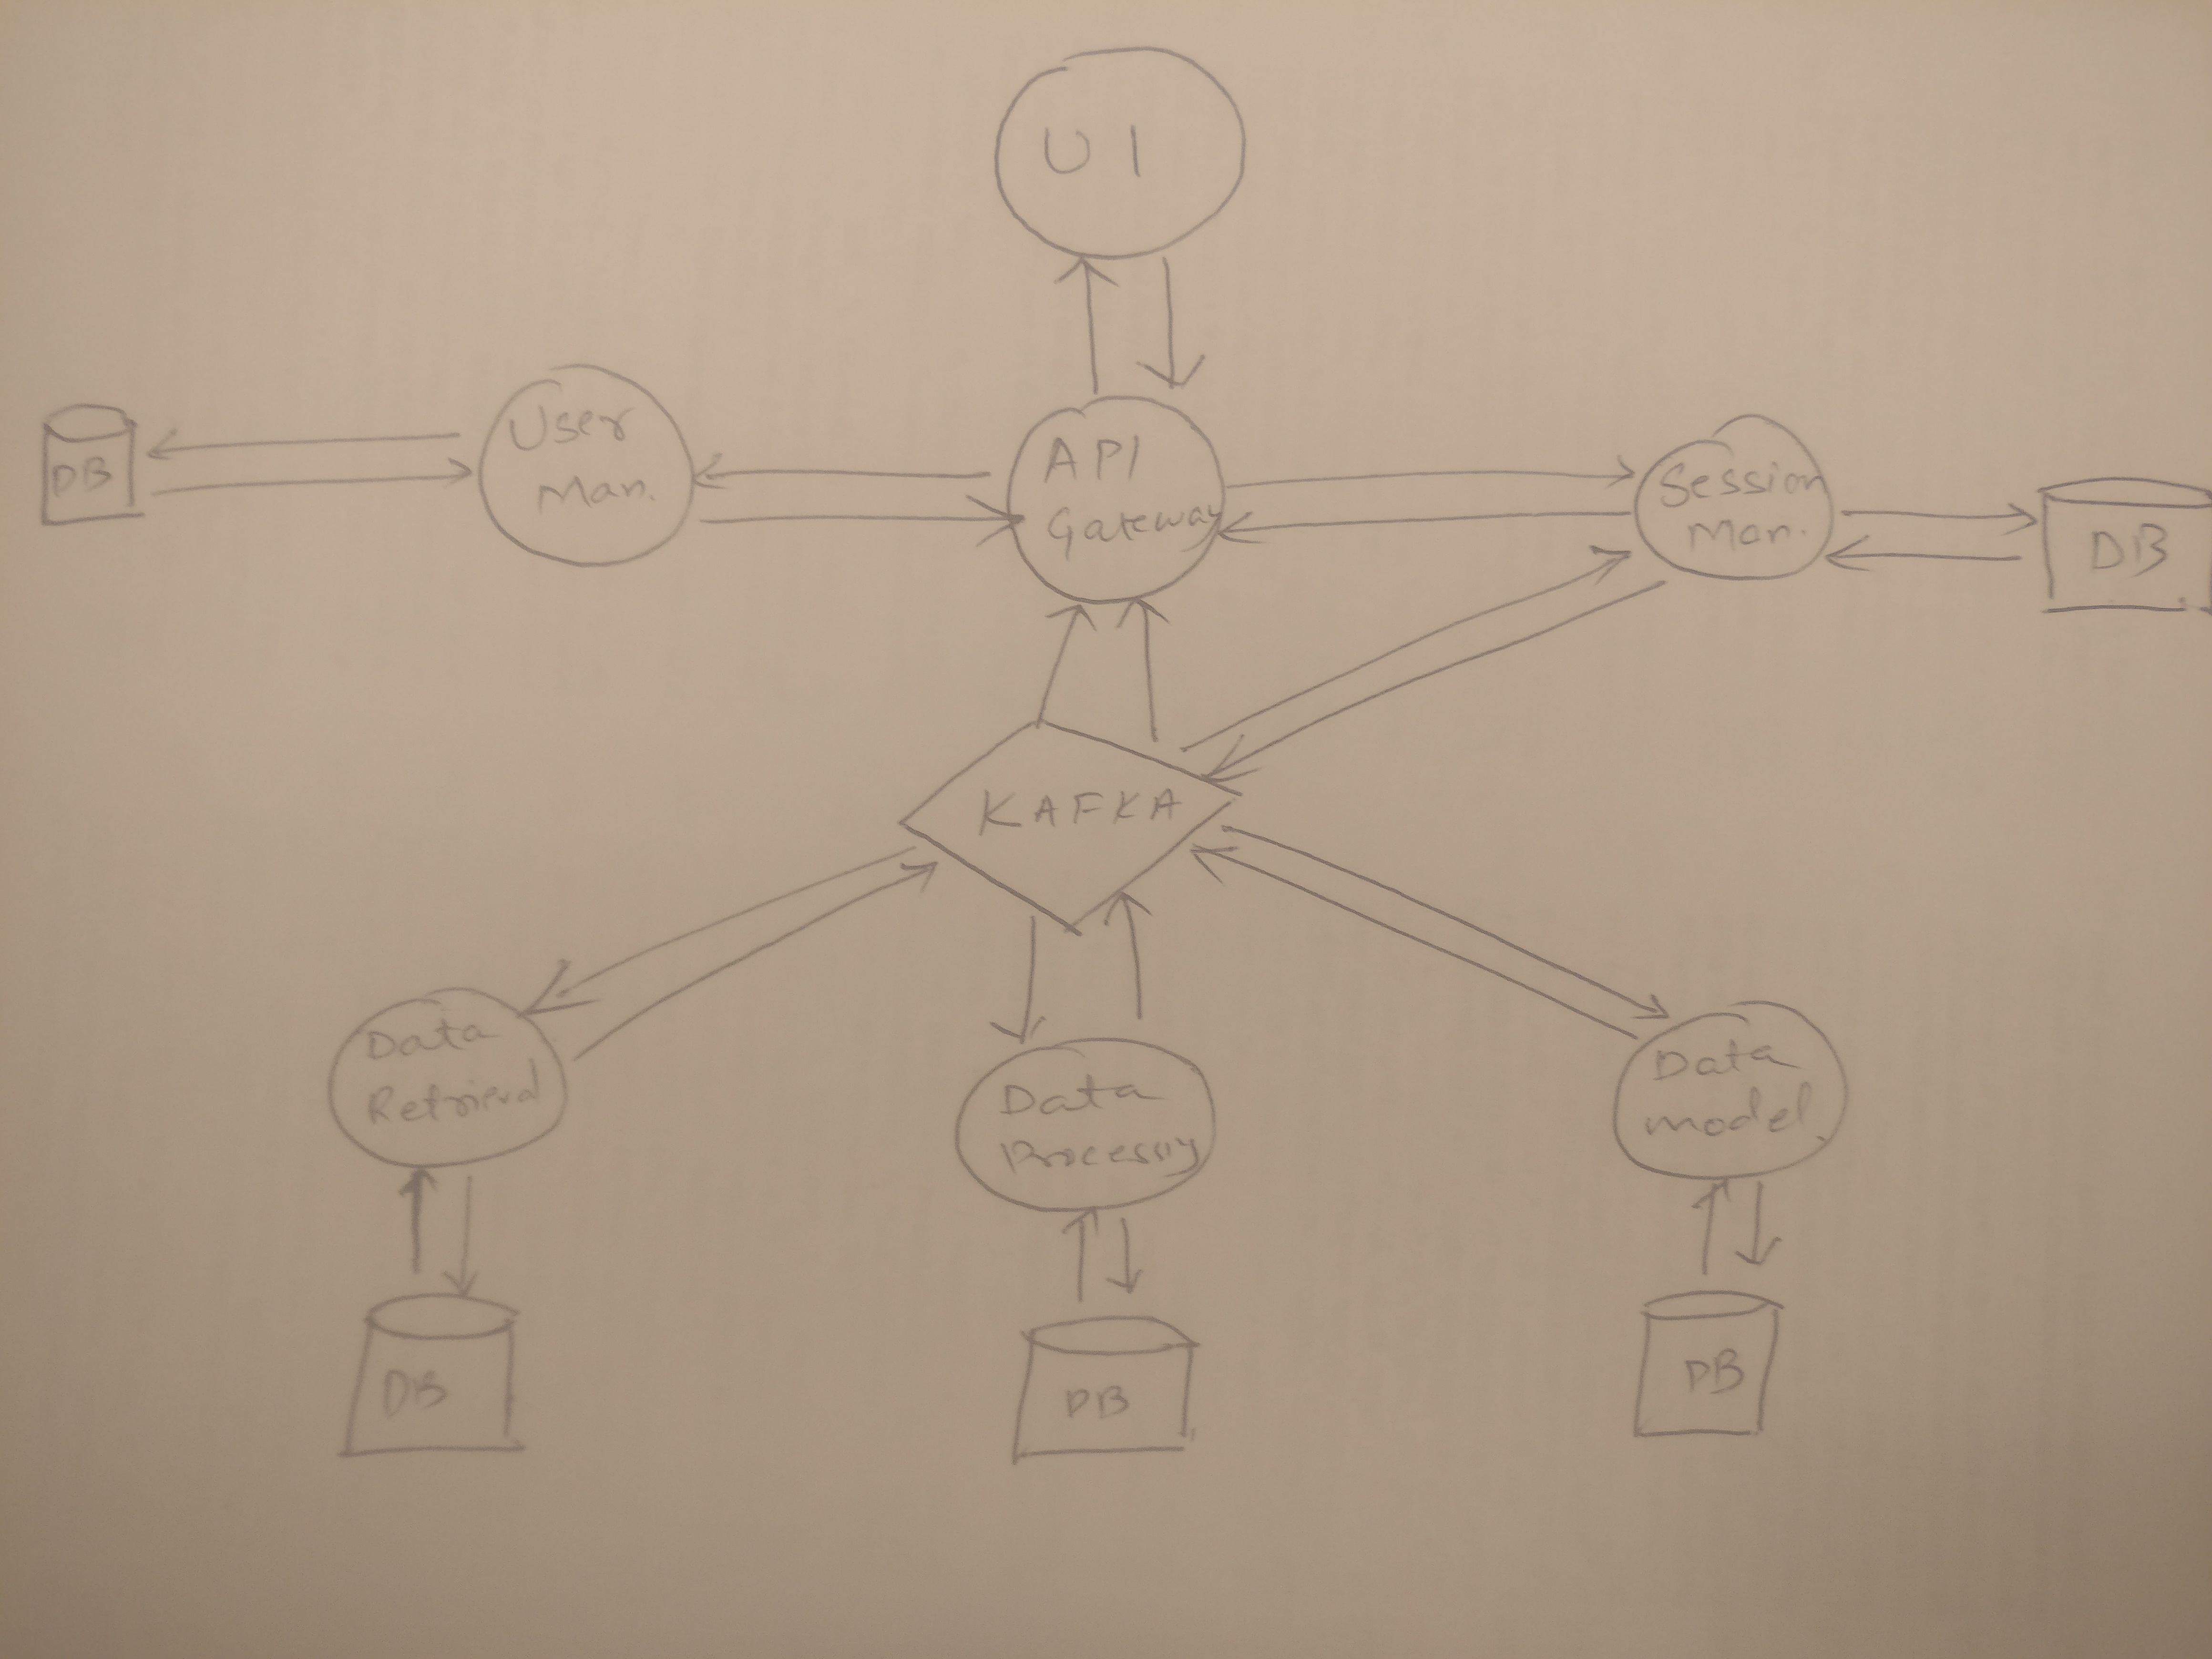 UI
DB
User
Man.
API
Gateway
Session
Man.
DB
KAFKA
Data
Retrieval
Data
Processng
Data
model.
DB
DB
DB